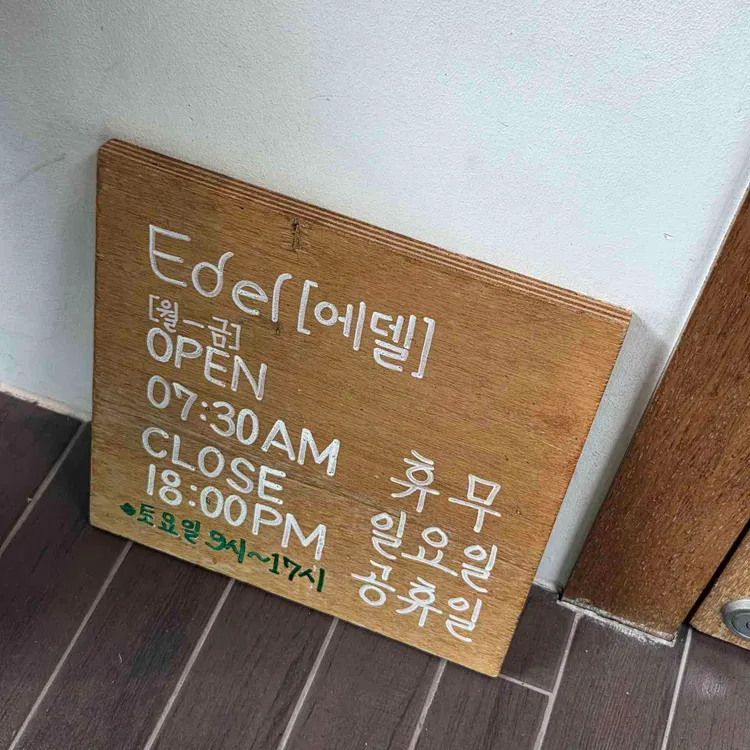 Edel [에델]
[월-금]
OPEN
07:30AM
CLOSE
18:00PM
토요일 9시~17시
휴무
일요일
공휴일